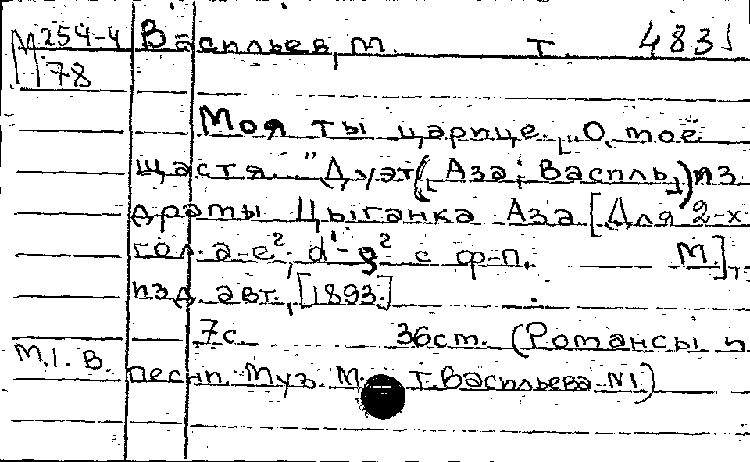 М 254-4 Васильев, М. Т. 483
78
Моя ты царице. „О, моё
щастя..." Дуэт (Аза; Василь) из
драмы Цыганка Аза [Для 2-х
гол. a-e², d¹-g² с ф-п. М.],
изд. авт., [1893.]
7 с. 36 ст. (Романсы и
М.I.В. песни. Муз. М. Т. Васильева №1)